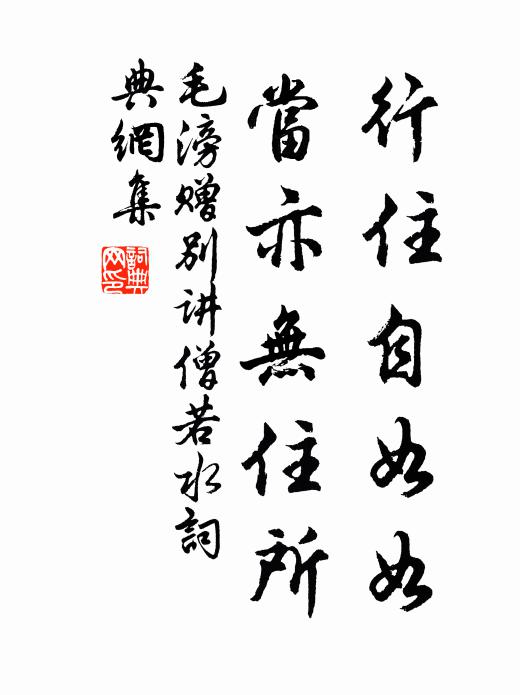 行住自如如
當亦無住所
毛滂贈別讲僧若水詞
典網集
詞典
网印